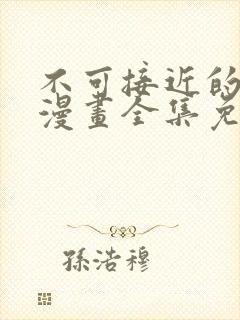 不可接近的
漫畫全集免
孫浩穆